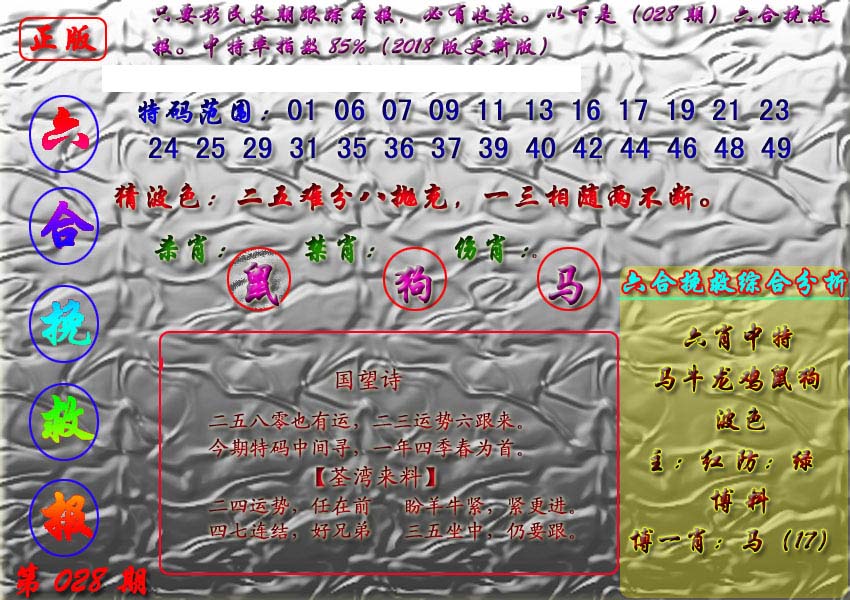 正版
只要彩民长期跟踪本报，必有收获。以下是（028期）六合挽救
报。中特率指数85%（2018版更新版）
六合挽救报
特码范围：01 06 07 09 11 13 16 17 19 21 23
24 25 29 31 35 36 37 39 40 42 44 46 48 49
猜波色：二五难分八抛充，一三相随两不断。
杀肖： 禁肖： 伤肖：。
鼠 狗 马
国望诗
二五八零也有运，二三运势六跟来。
今期特码中间寻，一年四季春为首。
【荃湾来料】
二四运势，任在前 盼羊牛紧，紧更进。
四七连结，好兄弟 三五坐中，仍要跟。
六合挽救综合分析
六肖中特
马牛龙鸡鼠狗
波色
主：红防：绿
博料
博一肖：马（17）
第028期